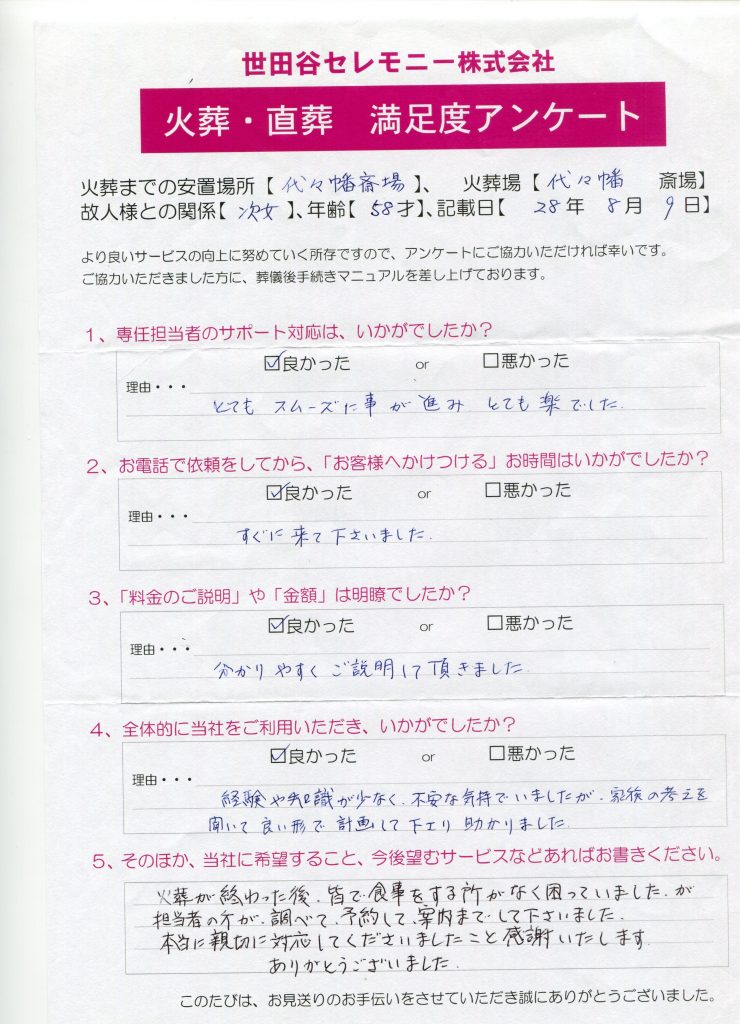 世田谷セレモニー株式会社
火葬・直葬　満足度アンケート
火葬までの安置場所【 代々幡斎場 】、　火葬場【 代々幡　斎場】
故人様との関係【 次女 】、年齢【 58才】、記載日【 28年 8月 9日】
より良いサービスの向上に努めていく所存ですので、アンケートにご協力いただければ幸いです。
ご協力いただきました方に、葬儀後手続きマニュアルを差し上げております。
1、専任担当者のサポート対応は、いかがでしたか？
☑良かった　or　□悪かった
理由・・・
とても スムーズに事が進み とても楽でした.
2、お電話で依頼をしてから、「お客様へかけつける」お時間はいかがでしたか？
☑良かった　or　□悪かった
理由・・・
すぐに来て下さいました.
3、「料金のご説明」や「金額」は明瞭でしたか？
☑良かった　or　□悪かった
理由・・・
分かりやすく ご説明して頂きました.
4、全体的に当社をご利用いただき、いかがでしたか？
☑良かった　or　□悪かった
理由・・・
経験や知識が少なく、不安な気持でいましたが、家族の考えを
聞いて良い形で計画して下さり 助かりました.
5、そのほか、当社に希望すること、今後望むサービスなどあればお書きください。
火葬が終わった後、皆で食事をする所がなく困っていました.が
担当者の方が、調べて、予約して、案内までして下さいました.
本当に親切に対応してくださいましたこと感謝いたします
ありがとうございました.
このたびは、お見送りのお手伝いをさせていただき誠にありがとうございました。